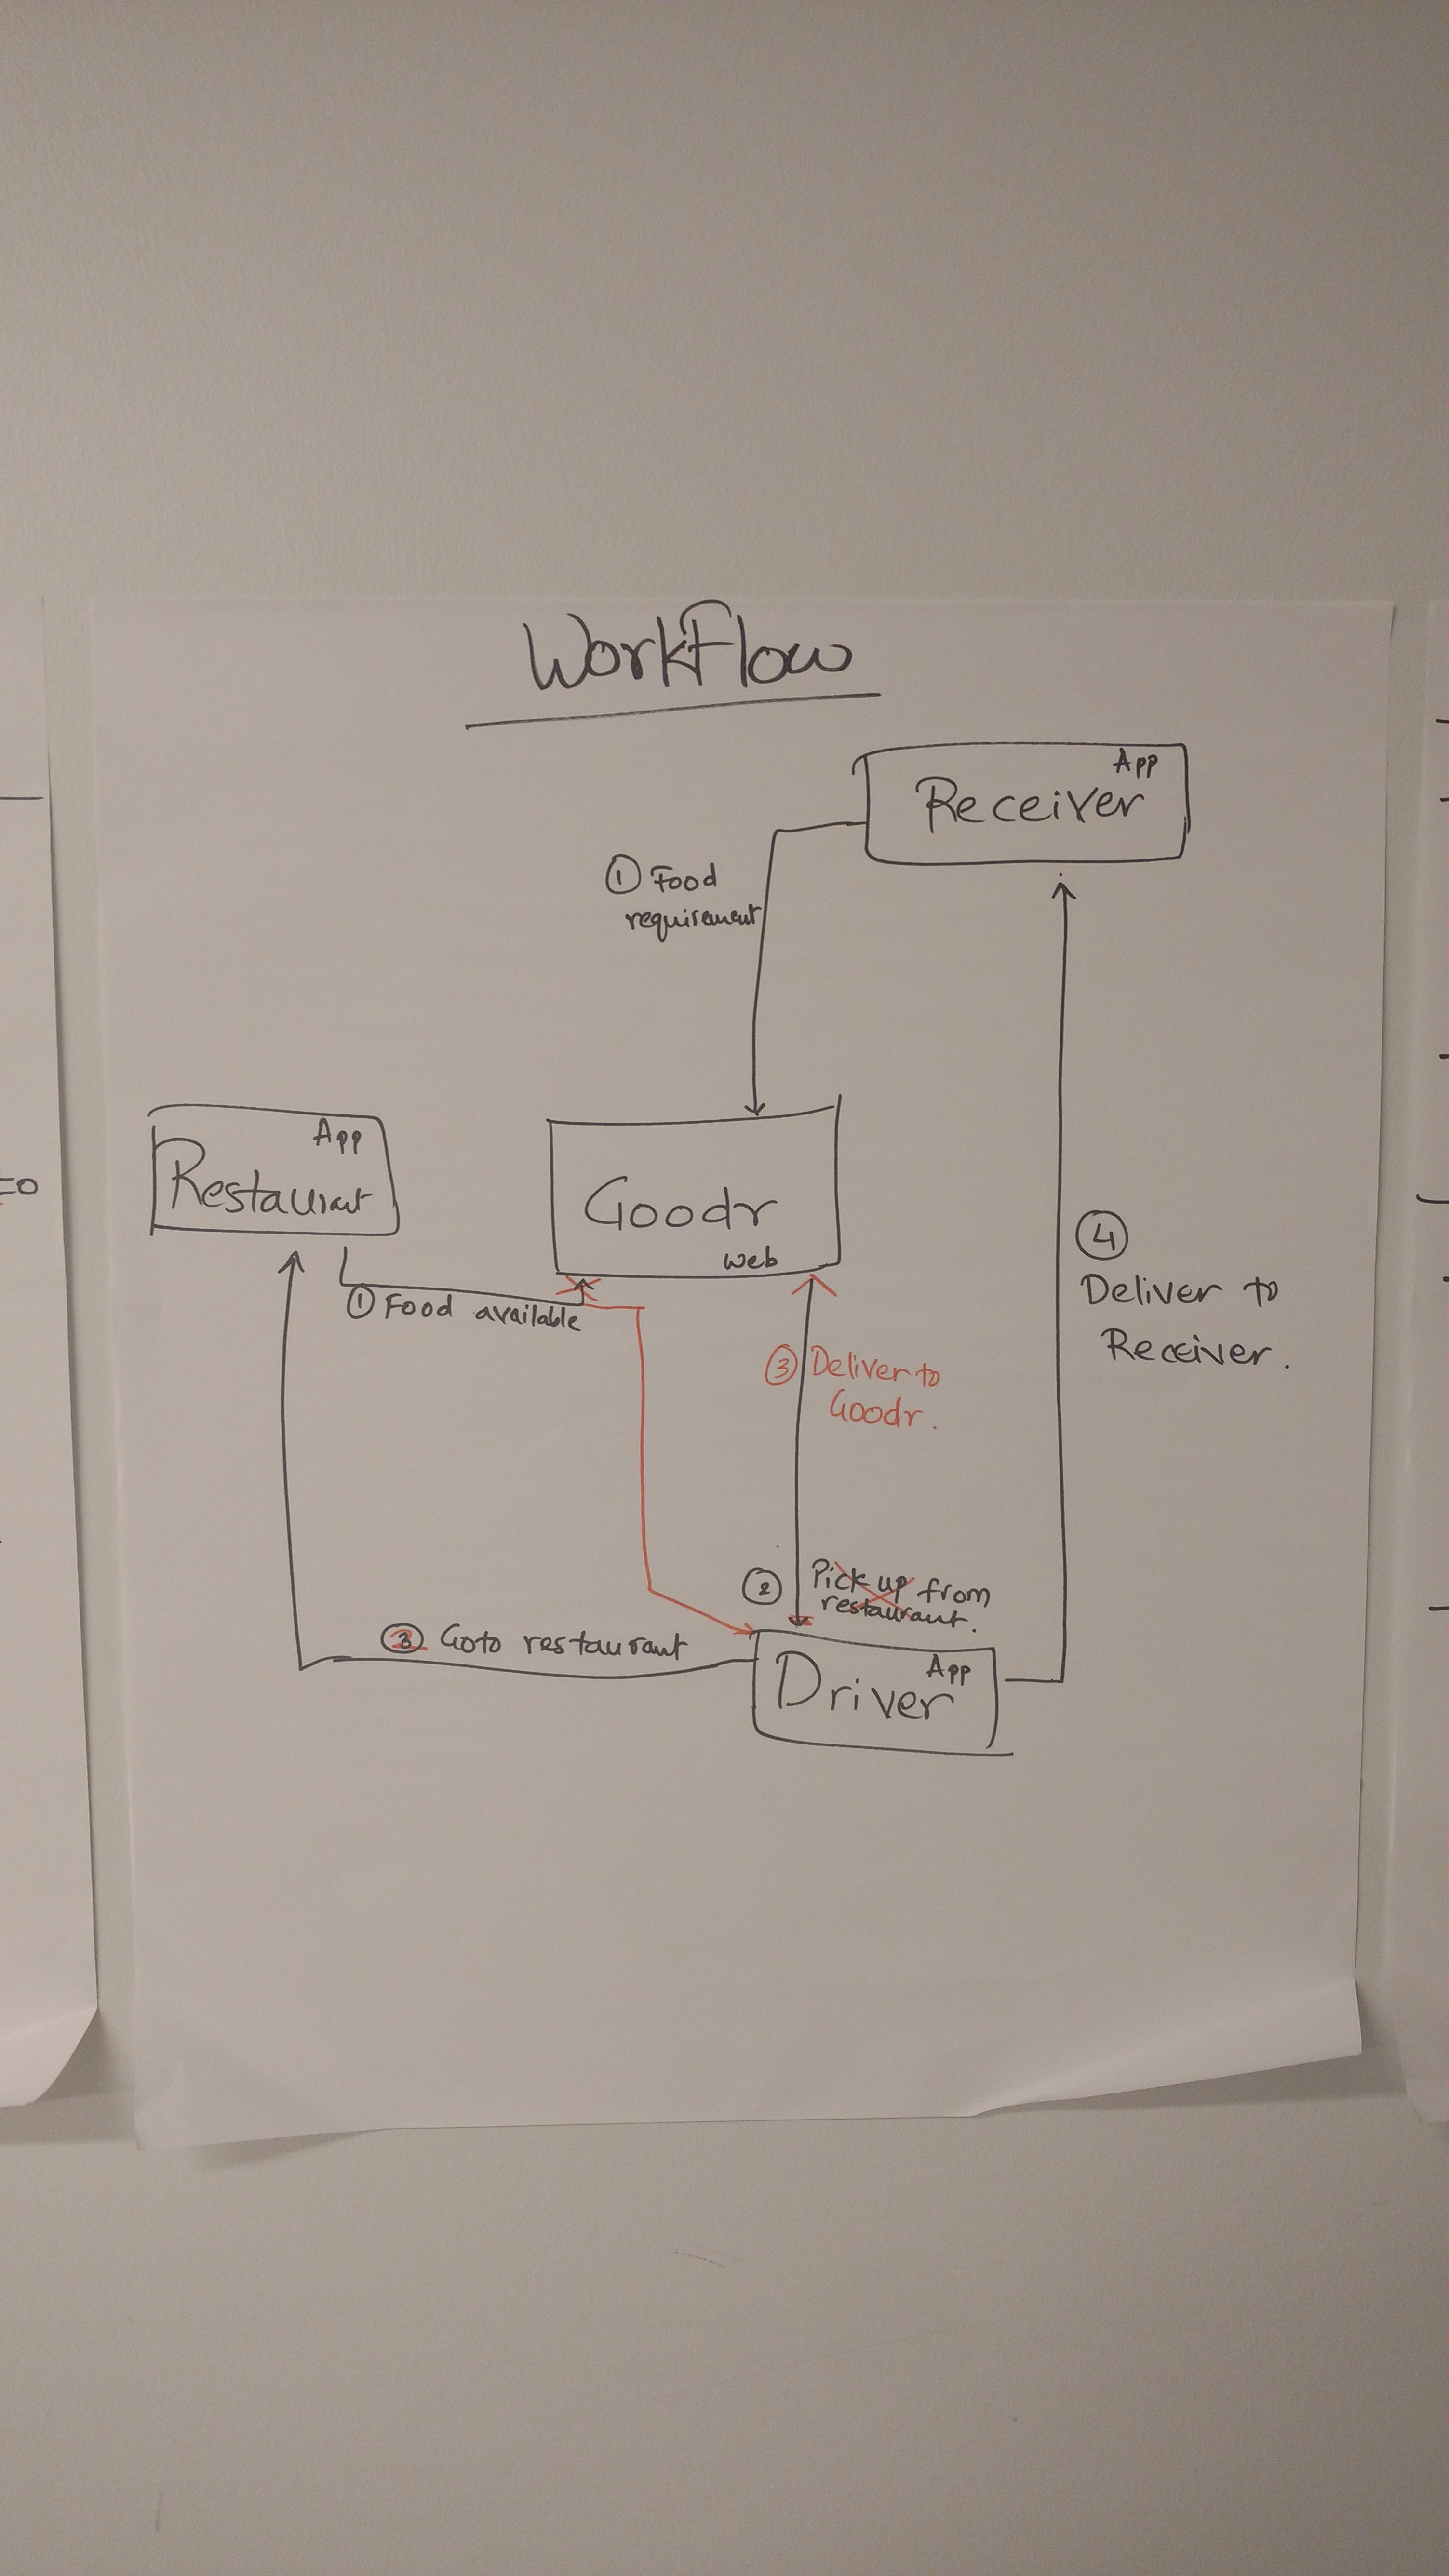 WorkFlow
App
Receiver
① Food
requirement
App
Restaurant
Goodr
Web
① Food available
③ Deliver to
Goodr.
④
Deliver to
Receiver.
② Pick up from
restaurant.
Goto restaurant
App
Driver